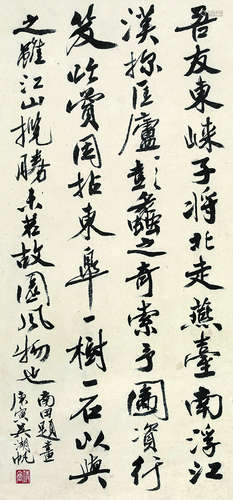 吾友東嵊子将北走燕臺南浮江
漢探匡廬彭蠡之奇索予圖資行
笈此賞因拈東皐一樹一石以與
之雖江山攬勝未若故園風物也
南田題畫
庚寅吴湖帆